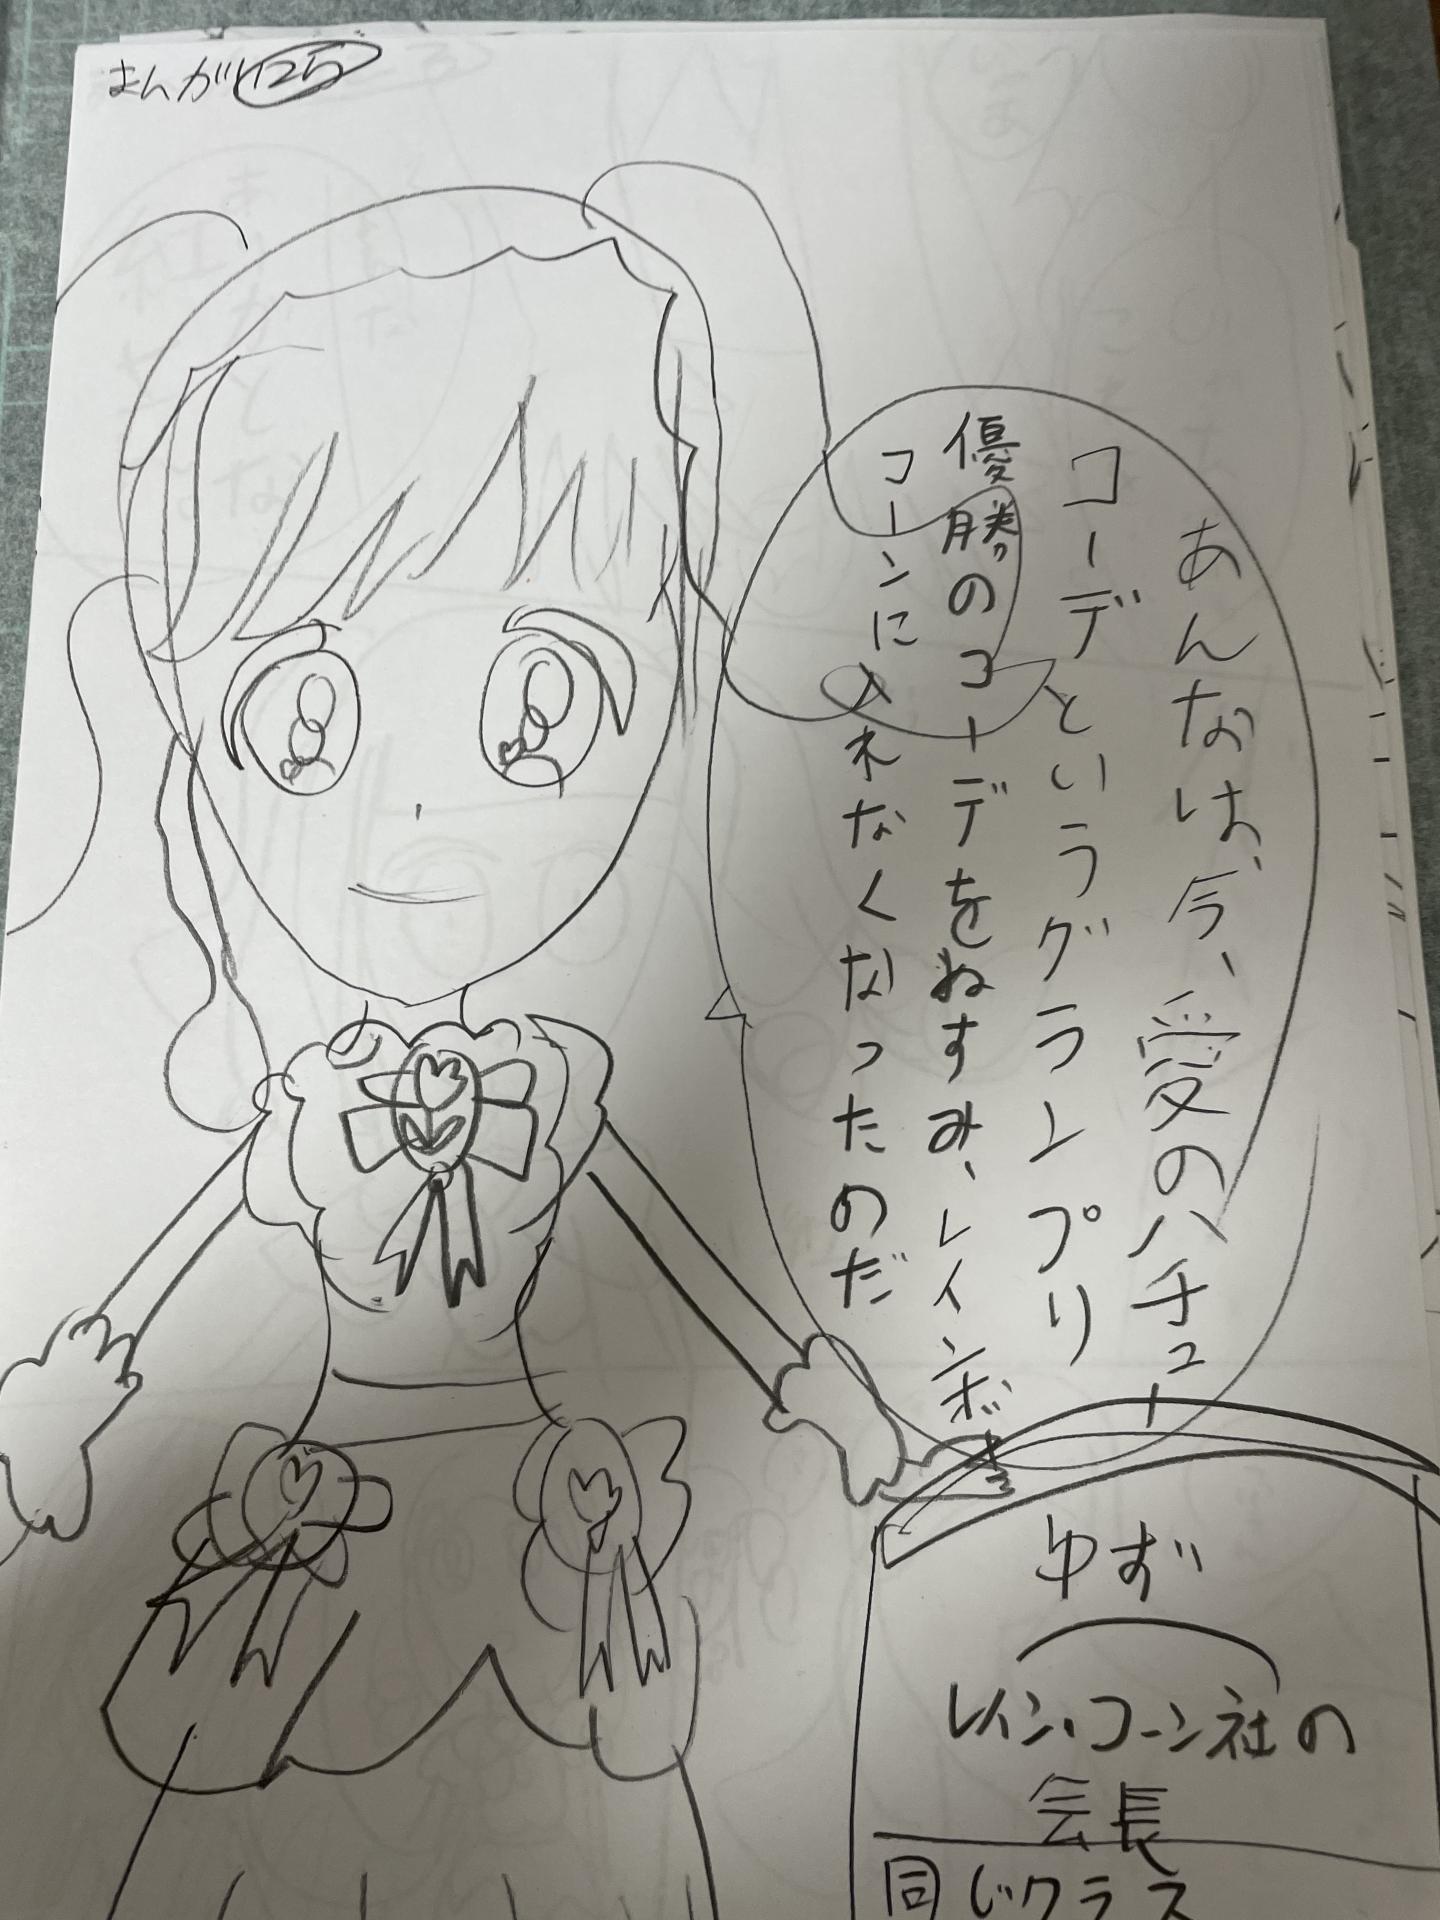 まんが125
あんなは、今、愛のハチュー
コーデというグランプリ
優勝のコーデをぬすみ、レインボー
コーンに入れなくなったのだ
ゆず
レイン・コーン社の
会長
同じクラス